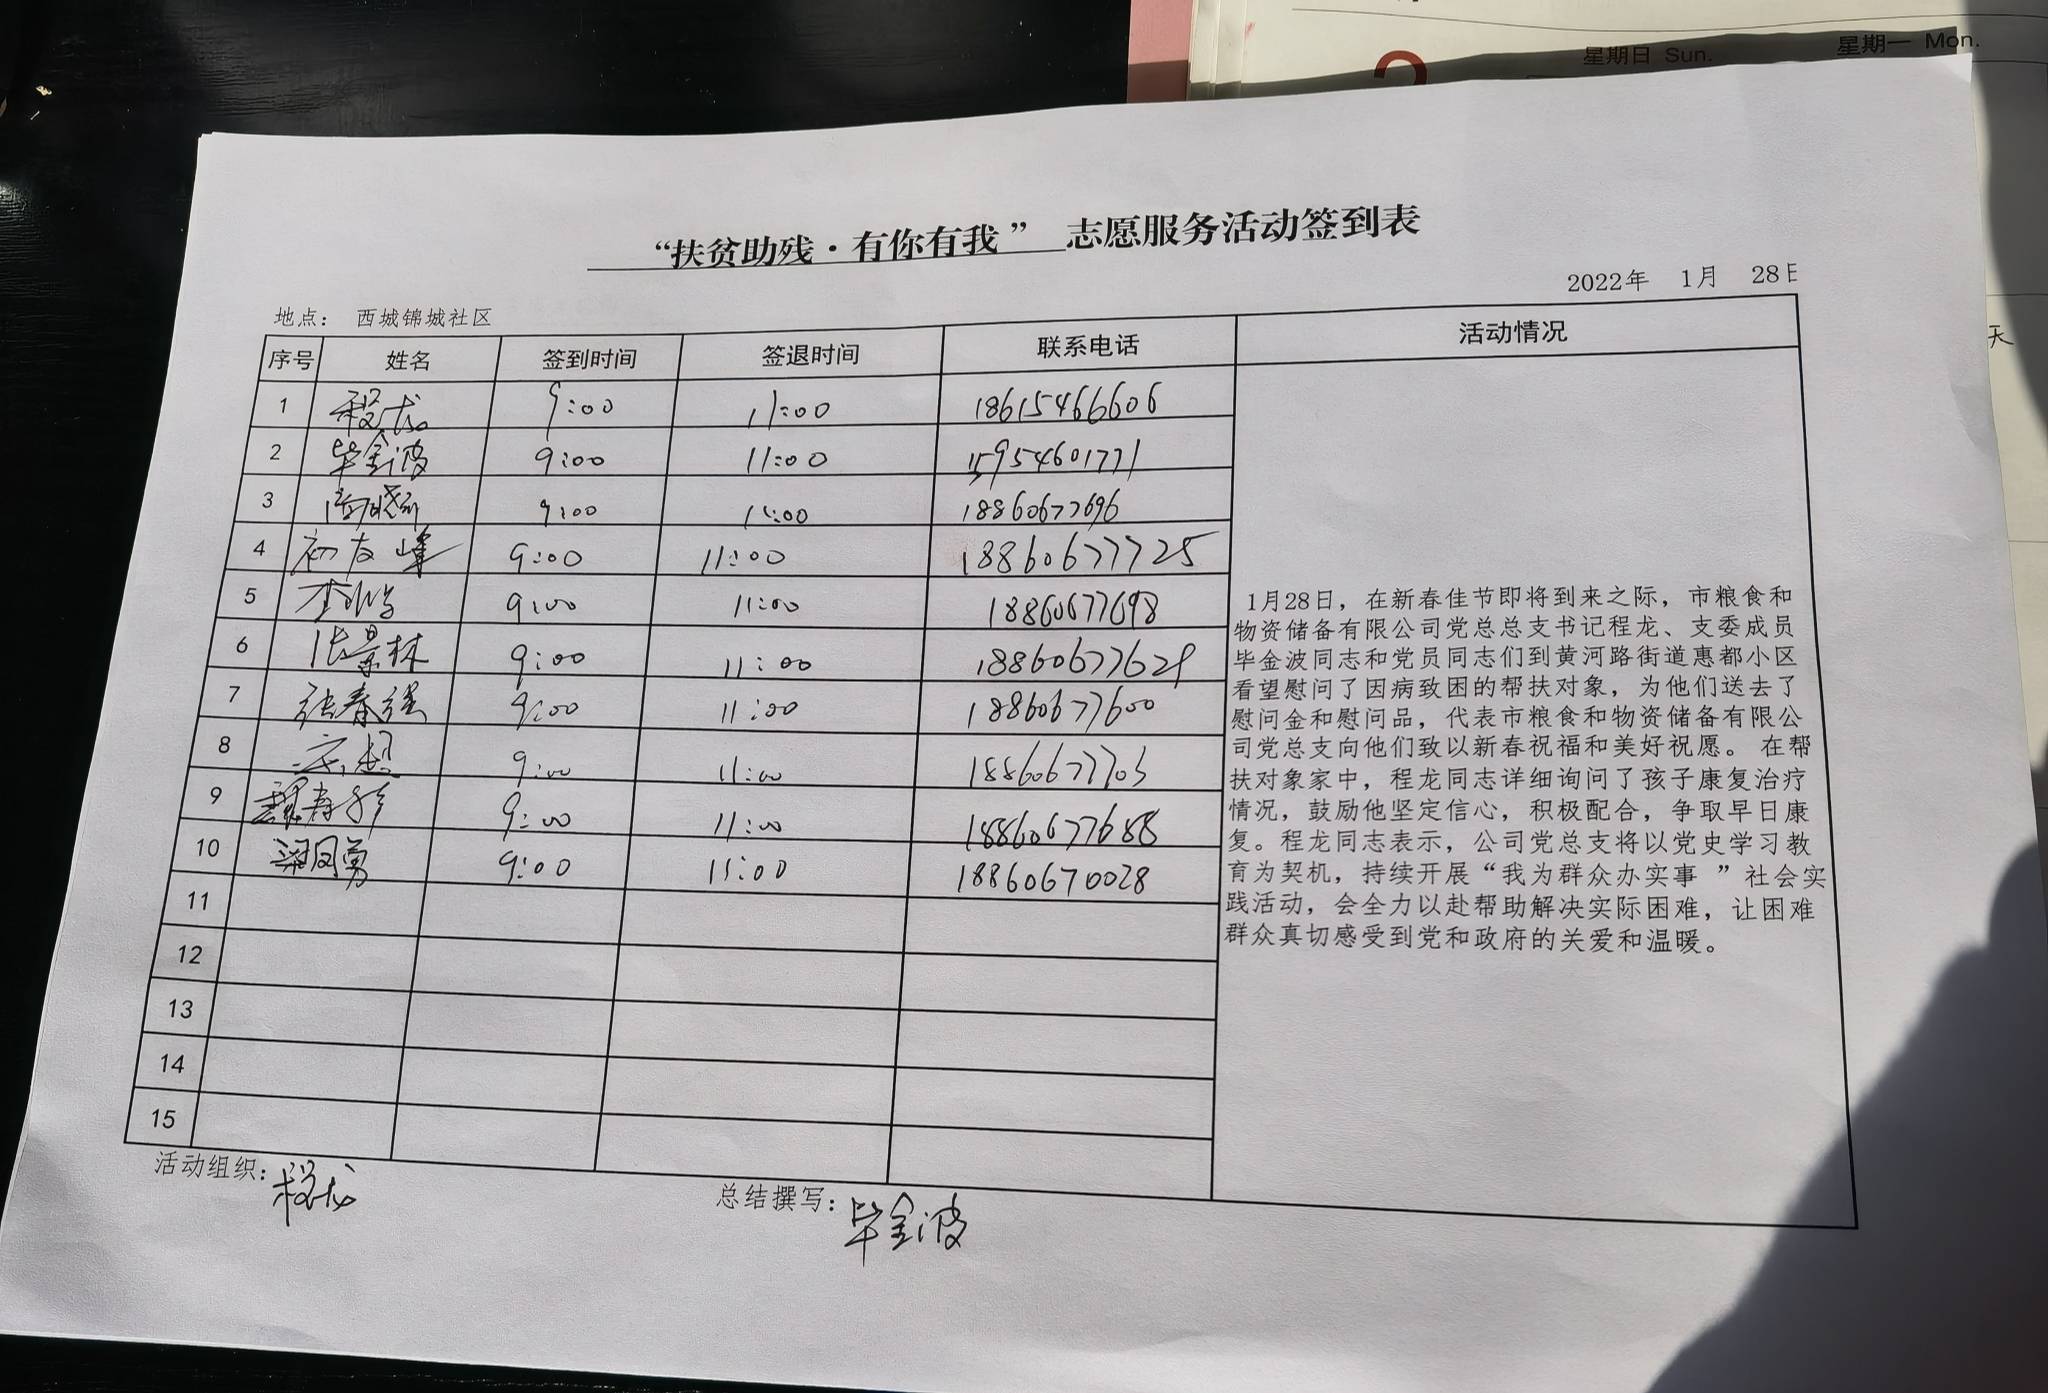 星期日 Sun. 星期一 Mon.
“扶贫助残·有你有我” 志愿服务活动签到表
2022年 1月 28日
地点： 西城锦城社区
序号 姓名 签到时间 签退时间 联系电话 活动情况
1 程龙 9:00 11:00 18615466606
2 毕金波 9:00 11:00 15954601771
3 9:00 11:00 18860677696
4 初友峰 9:00 11:00 18860677725
5 9:00 11:00 18860677698
6 张景林 9:00 11:00 18860677629
7 张春强 9:00 11:00 18860677600
8 9:00 11:00 18860677703
9 9:00 11:00 18860677688
10 梁同勇 9:00 11:00 18860670028
11
12
13
14
15
1月28日，在新春佳节即将到来之际，市粮食和
物资储备有限公司党总总支书记程龙、支委成员
毕金波同志和党员同志们到黄河路街道惠都小区
看望慰问了因病致困的帮扶对象，为他们送去了
慰问金和慰问品，代表市粮食和物资储备有限公
司党总支向他们致以新春祝福和美好祝愿。 在帮
扶对象家中，程龙同志详细询问了孩子康复治疗
情况，鼓励他坚定信心，积极配合，争取早日康
复。程龙同志表示，公司党总支将以党史学习教
育为契机，持续开展“我为群众办实事 ”社会实
践活动，会全力以赴帮助解决实际困难，让困难
群众真切感受到党和政府的关爱和温暖。
活动组织：程龙 总结撰写：毕金波
天